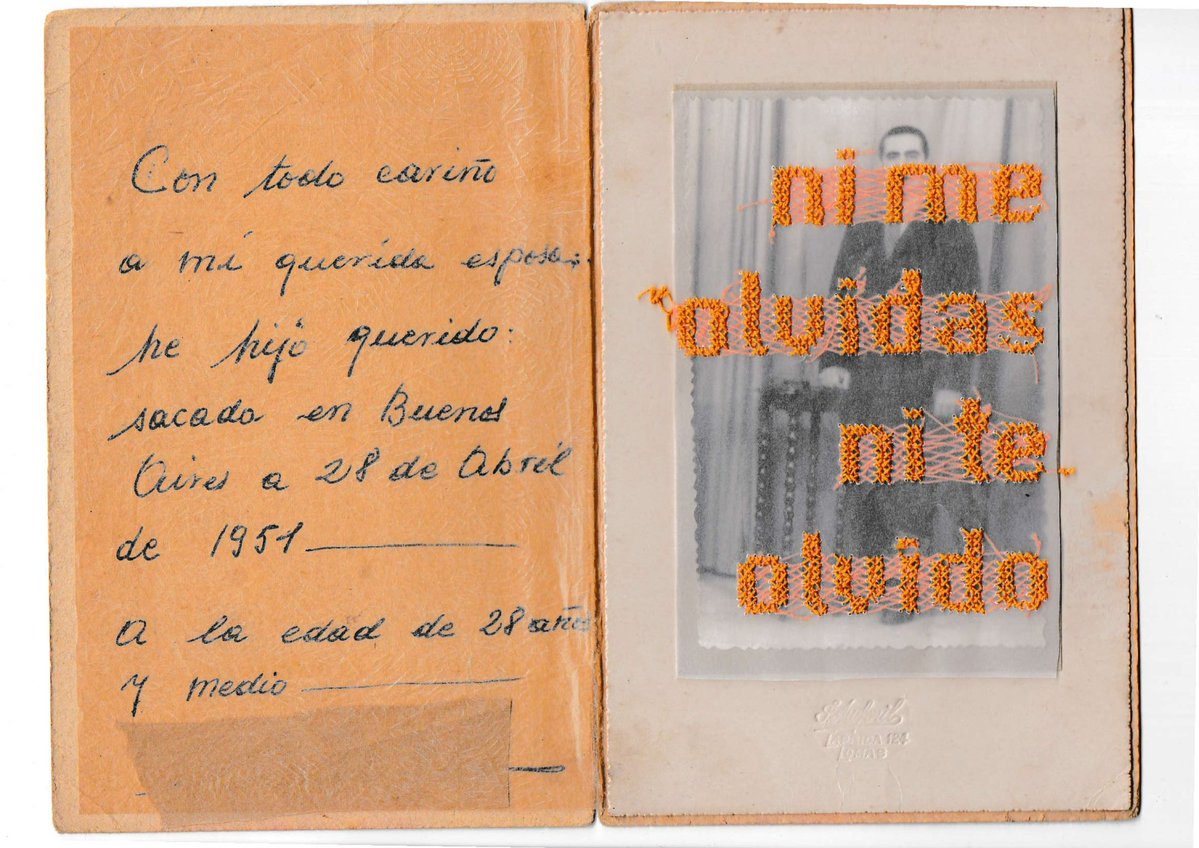 Con todo cariño
a mi querida esposa.
he hijo querido.
sacada en Buenos
Aires a 28 de Abril
de 1951
A la edad de 28 años
y medio
ni me
olvidas
ni te
olvido
LOMAS